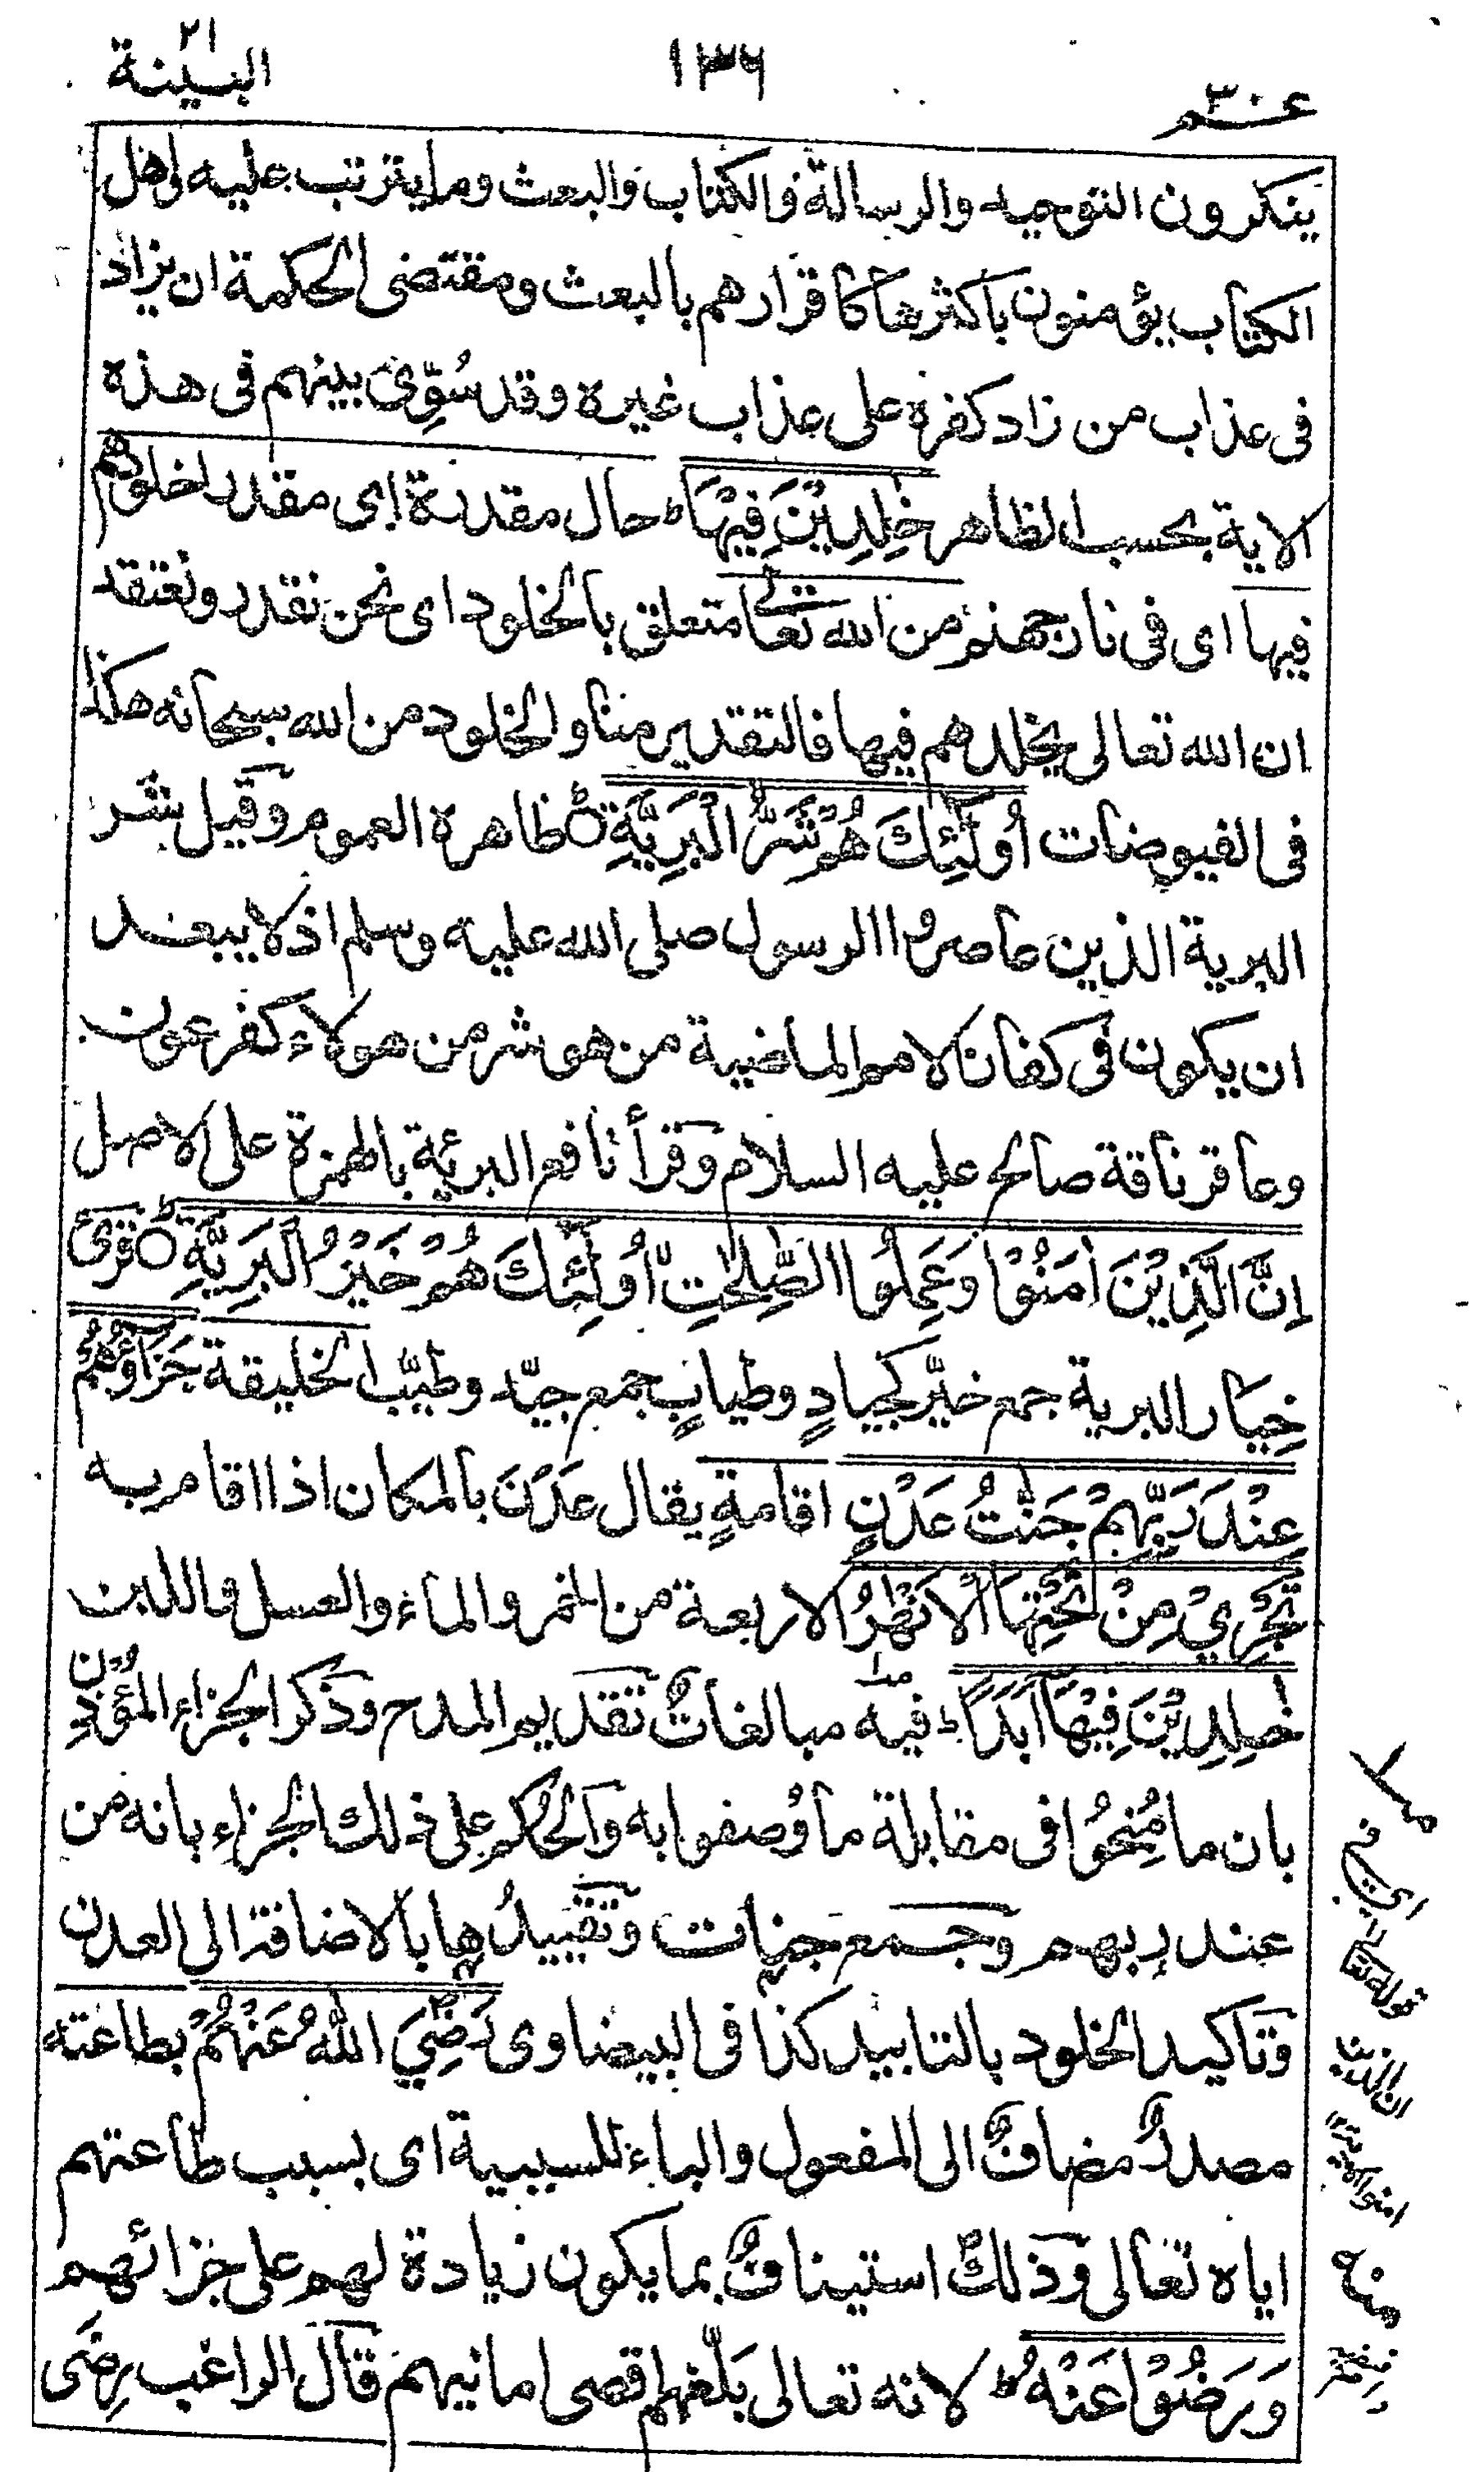 البينة ٢١
١٣٦
عم ٣٠
ينكرون التوحيد والرسالة والكتاب والبعث وما يترتب عليه واهل
الكتاب يؤمنون باكثرها كاقرارهم بالبعث ومقتضى الحكمة ان يزاد
فى عذاب من زاد كفره على عذاب غيره وقد سُوِّىَ بينهم فى هذه
الاية بحسب الظاهر خٰلِدِيْنَ فِيْهَا ط حال مقدرة اى مقدرا خلودهم
فيها اى فى نار جهنم من الله تعالى متعلق بالخلود اى نحن نقدر ونعتقد
ان الله تعالى يخلدهم فيها فالتقدير منا والخلود من الله سبحانه هكذا
فى الفيوضات اُولٰٓئِكَ هُمْ شَرُّ الْبَرِيَّةِ ظاهره العموم وقيل شر
البرية الذين عاصروا الرسول صلى الله عليه وسلم اذ لا يبعد
ان يكون فى كفار الامم الماضية من هو شر من هولاء كفرعون
وعاقر ناقة صالح عليه السلام وقرأ نافع البريئة بالهمزة على الاصل
اِنَّ الَّذِيْنَ اٰمَنُوْا وَعَمِلُوا الصّٰلِحٰتِ اُولٰٓئِكَ هُمْ خَيْرُ الْبَرِيَّةِ قرئ
خِيَار البرية جمع خيّر كجيادٍ وطيابٍ جمع جيّد وطيّب الخليقة جَزَآؤُهُمْ
عِنْدَ رَبِّهِمْ جَنّٰتُ عَدْنٍ اقامةٍ يقال عَدَنَ بالمكان اذا اقام به
تَجْرِيْ مِنْ تَحْتِهَا الْاَنْهٰرُ الاربعة من الخمر والماء والعسل واللبن
خٰلِدِيْنَ فِيْهَآ اَبَدًا ط فيه مبالغاتٌ تقديم المدح وذكر الجزاء المؤذن
بان ما مُنِحُوا فى مقابلة ما وُصفوا به والحكم على ذلك الجزاء بانه من
عند ربهم وجمع جنات وتقييدُها بالاضافة الى العدن
وتاكيد الخلود بالتابيد كذا فى البيضاوى رَضِيَ اللّٰهُ عَنْهُمْ بطاعته
مصدرٌ مضافٌ الى المفعول والباء للسببية اى بسبب طاعتهم
اياه تعالى وذلك استينافٌ بما يكون زيادة لهم على جزائهم
وَرَضُوْا عَنْهُ ط لانه تعالى بَلَّغهم اقصى امانيهم قال الراغب رِضَى
اى فى
قوله تعالى
ان الذين
امنوا الاية
منه